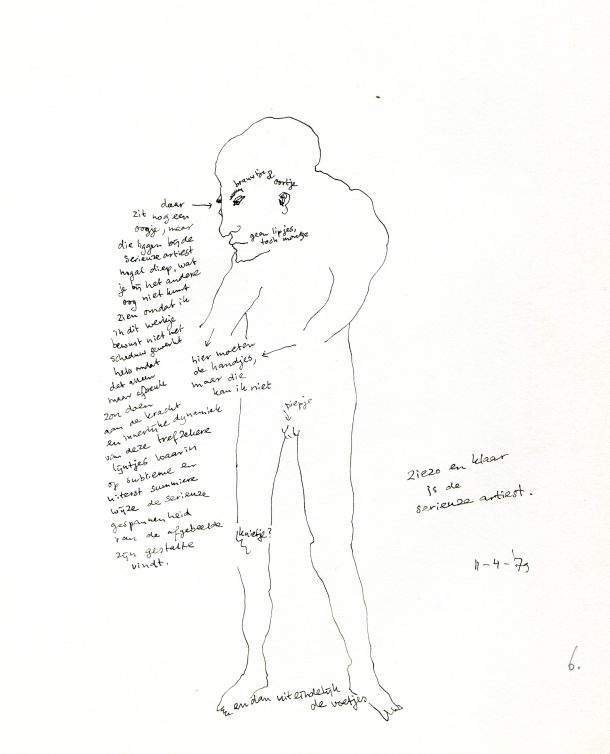 brauwtje & oortje
geen lipjes,
toch mondje
daar
zit nog een
oogje, maar
die liggen bij de
serieuze artiest
nogal diep, wat
je bij het andere
oog niet kunt
zien omdat ik
in dit werkje
bewust niet met
schaduw gewerkt
heb omdat
dat alleen
maar afbreuk
zou doen
aan de kracht
en innerlijke dynamiek
van deze trefzekere
lijntjes waarin
op sublieme en
uiterst summiere
wijze de serieuze
gespannenheid
van de afgebeelde
zijn gestalte
vindt.
hier moeten
de handjes,
maar die
kan ik niet
piepje
knietje?
en dan uiteindelijk
de voetjes
ziezo en klaar
is de
serieuze artiest.
11-4-'79
6.